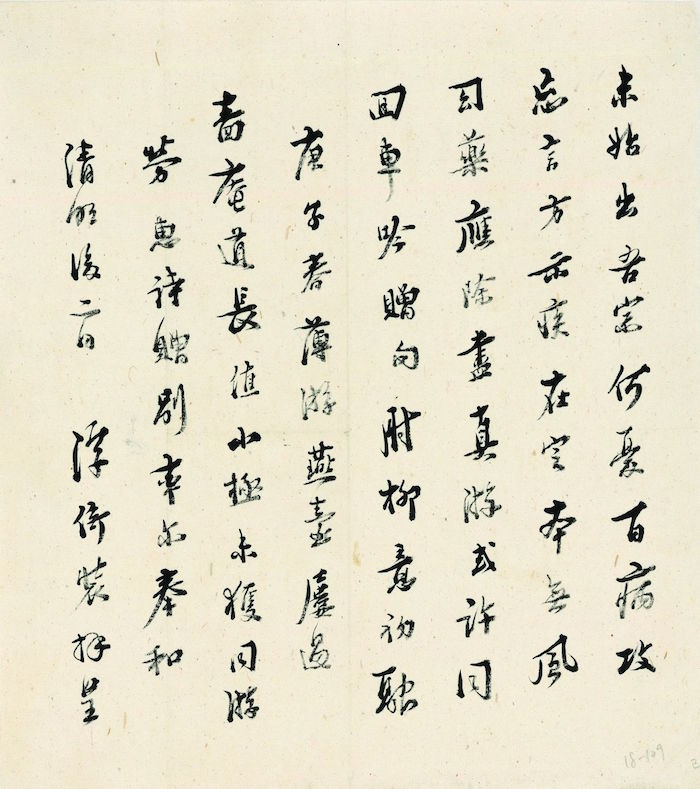 未始出吾宗何憂百病攻
忘言方示疾在定本無風
幻藥應除盡真游或許同
回車吟贈句肘柳意初融
庚子春薄游燕臺屢過
嗇庵道長值小極未獲同游
勞惠詩贈別率尔奉和
清明後二日 浮倚裝拜呈
18-109